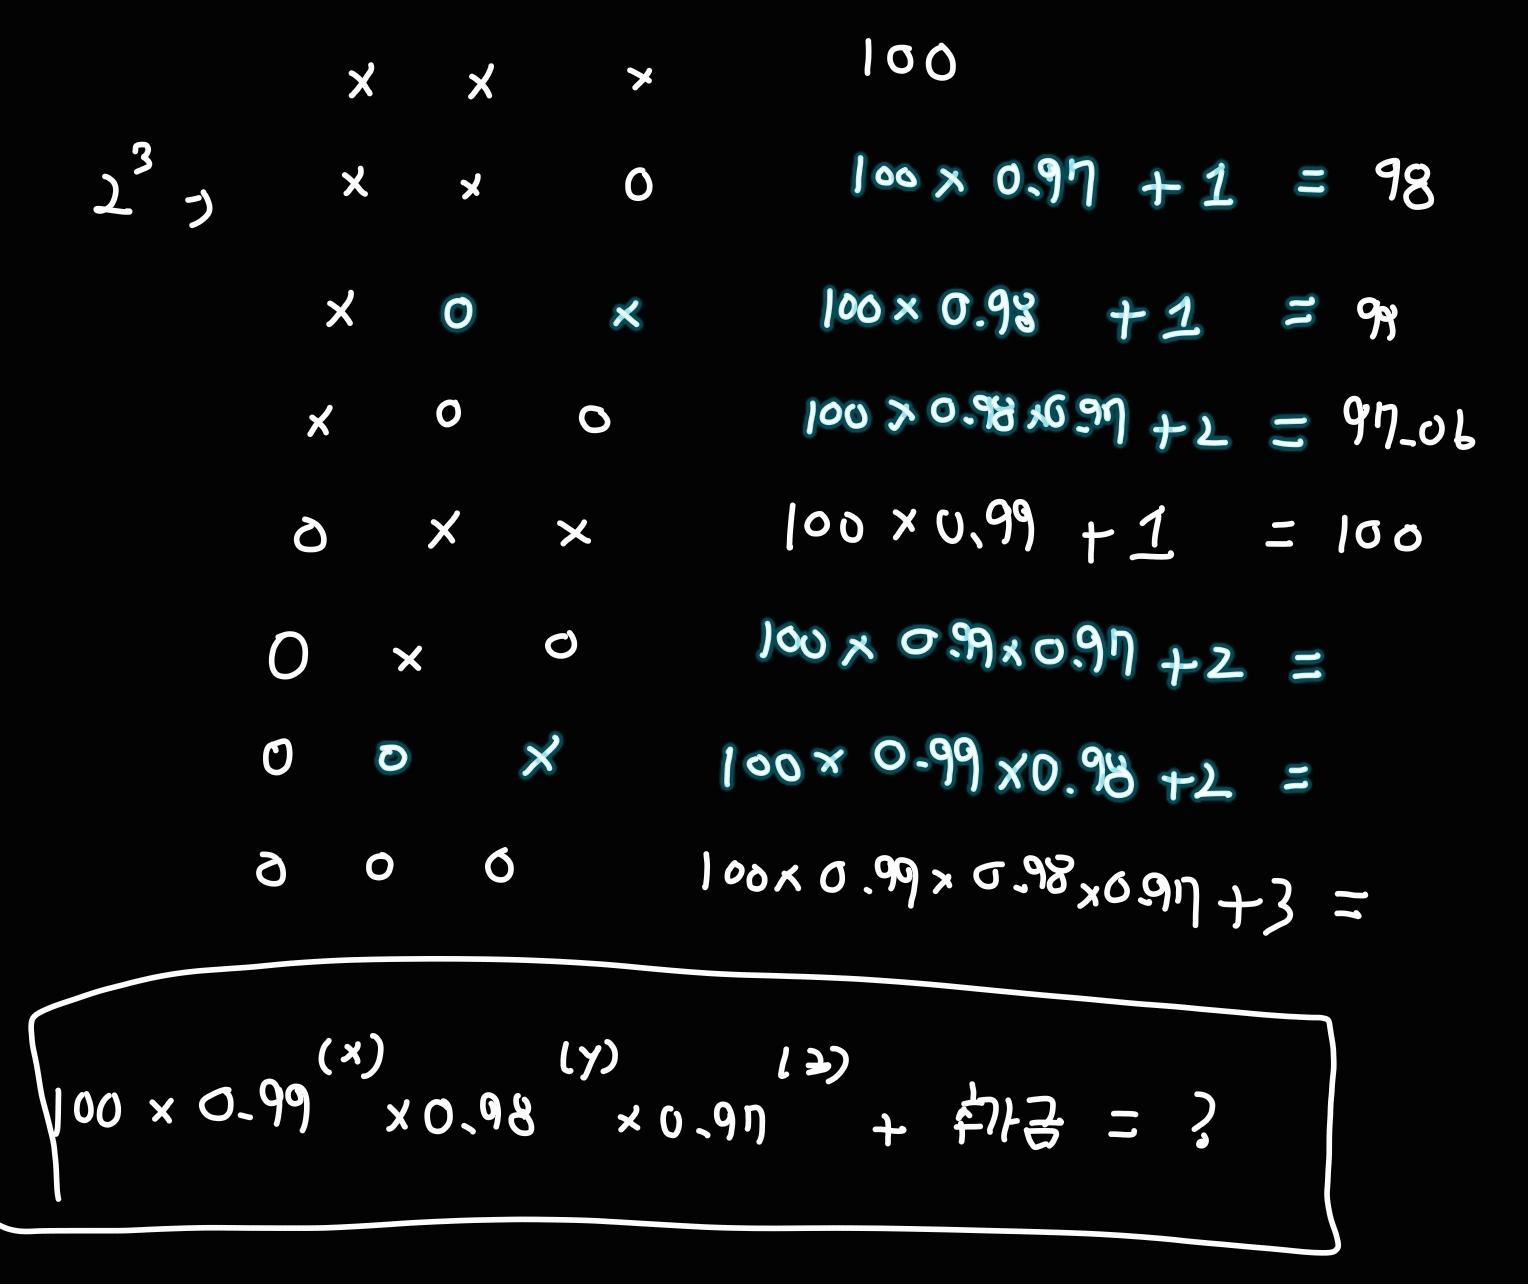 x x x 100
2³, x x 0 100 x 0.97 + 1 = 98
x 0 x 100 x 0.98 + 1 = 99
x 0 0 100 x 0.98 x 0.97 + 2 = 97.06
0 x x 100 x 0.99 + 1 = 100
0 x 0 100 x 0.99 x 0.97 + 2 =
0 0 x 100 x 0.99 x 0.98 + 2 =
0 0 0 100 x 0.99 x 0.98 x 0.97 + 3 =
100 x 0.99^(x) x 0.98^(y) x 0.97^(z) + 추가금 = ?